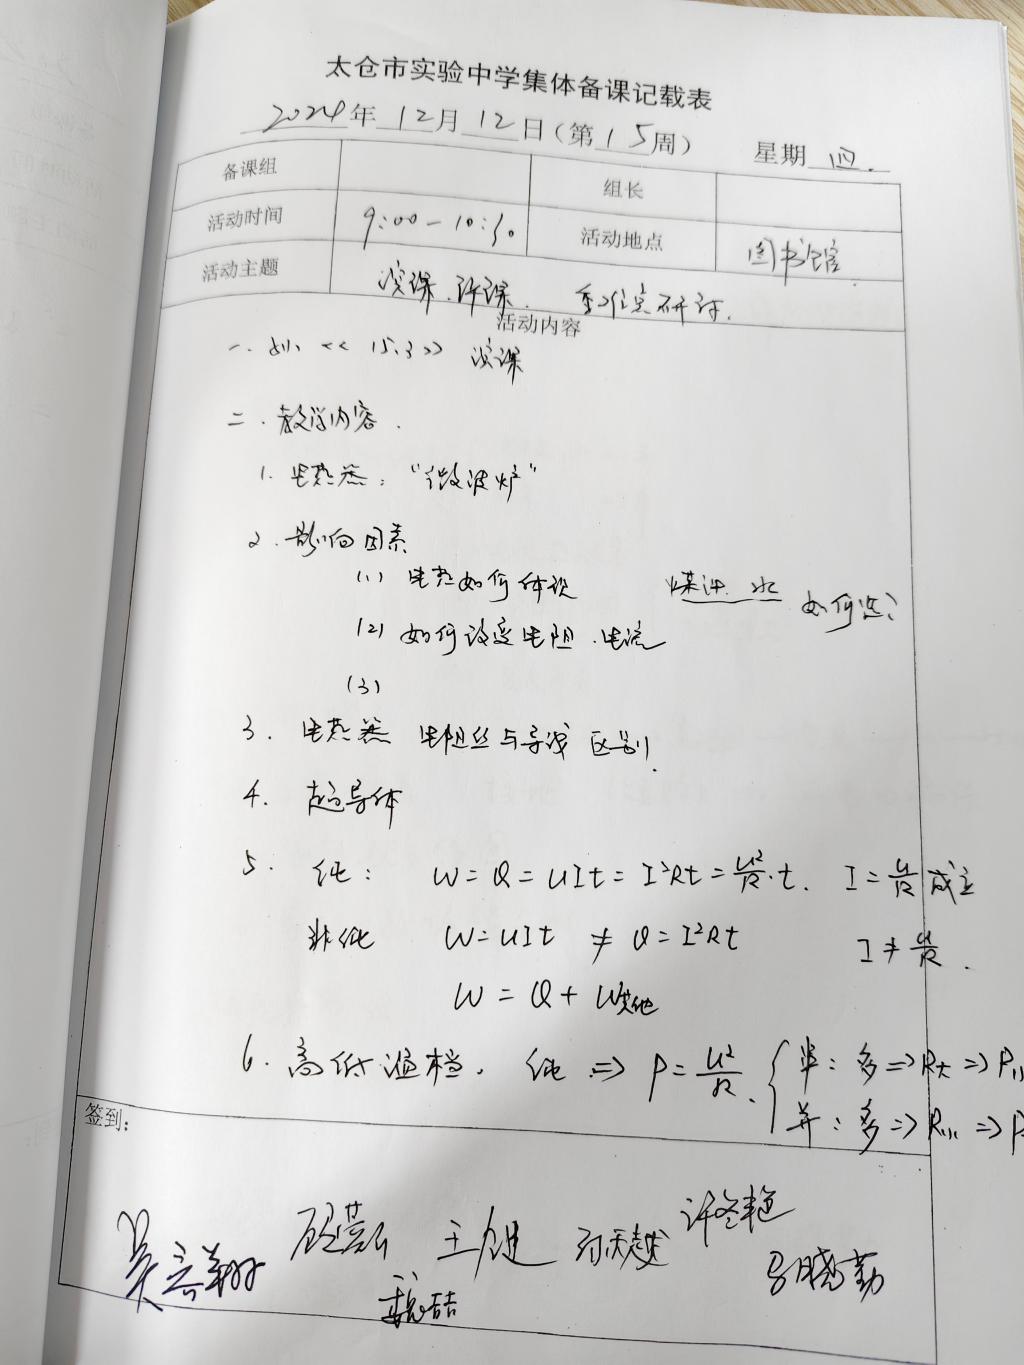 太仓市实验中学集体备课记载表
2024年 12月 12日(第 15周) 星期 四.
备课组 组长
活动时间 9:00-10:30 活动地点 图书馆
活动主题 演课.评课. 重难点研讨.
活动内容
一. <<15.3>> 演课
二. 教学内容.
1. 电热器: "微波炉"
2. 影响因素
(1) 电热如何体现 煤油 水 如何选?
(2) 如何改变电阻.电流
(3)
3. 电热器 电阻丝与导线区别.
4. 超导体
5. 纯: W=Q=UIt=I²Rt=U²/R·t. I=U/R 成立
非纯 W=UIt ≠ Q=I²Rt I≠U/R.
W=Q+W其他
6. 高低温档. 纯 => P=U²/R.
串: 多=>R大=>P小
并: 多=>R小=>P
签到:
王健
魏喆